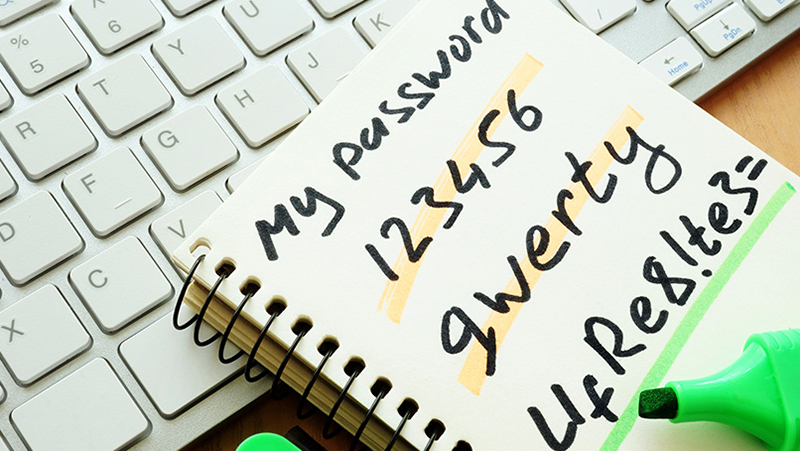 My password
123456
qwerty
UfRe8!te3=
%
5
^
6
R
T
Y
U
D
F
G
H
J
K
X
C
V
PgUp
PgDn
Home